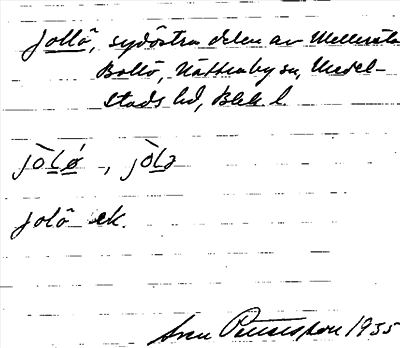 Jollö, sydöstra delen av Mellersta
Bollö, Nättraby sn, Medel-
stads hd, Blek. l.
jòlǿ, jòlə
Jolö ek.
Sven Pettersson 1935